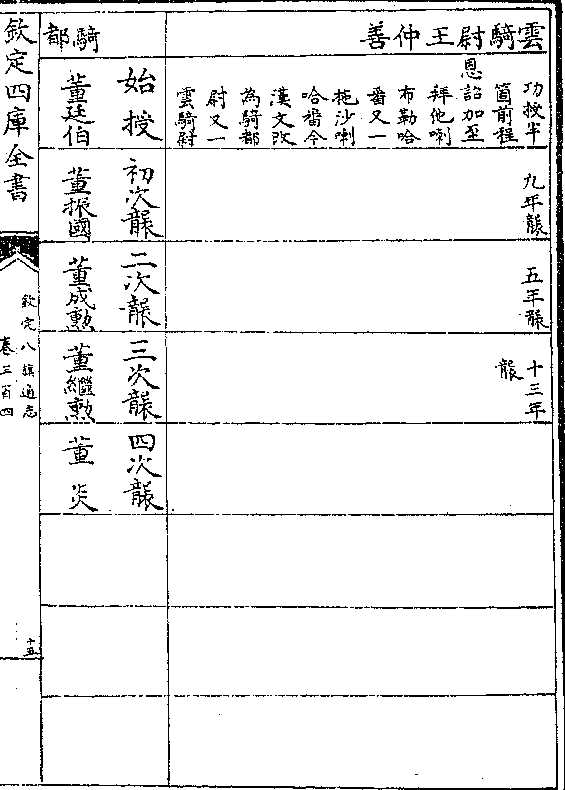 雲騎尉王仲善
功授半
箇前程
恩詔加至
拜他喇
布勒哈
番又一
拖沙喇
哈番今
漢文改
為騎都
尉又一
雲騎尉
九年襲
五年襲
十三年
襲
騎都
始授
董廷伯
初次襲
董振國
二次襲
董成勲
三次襲
董繼勲
四次襲
董炎
欽定四庫全書
欽定八旗通志
卷三百四
十五